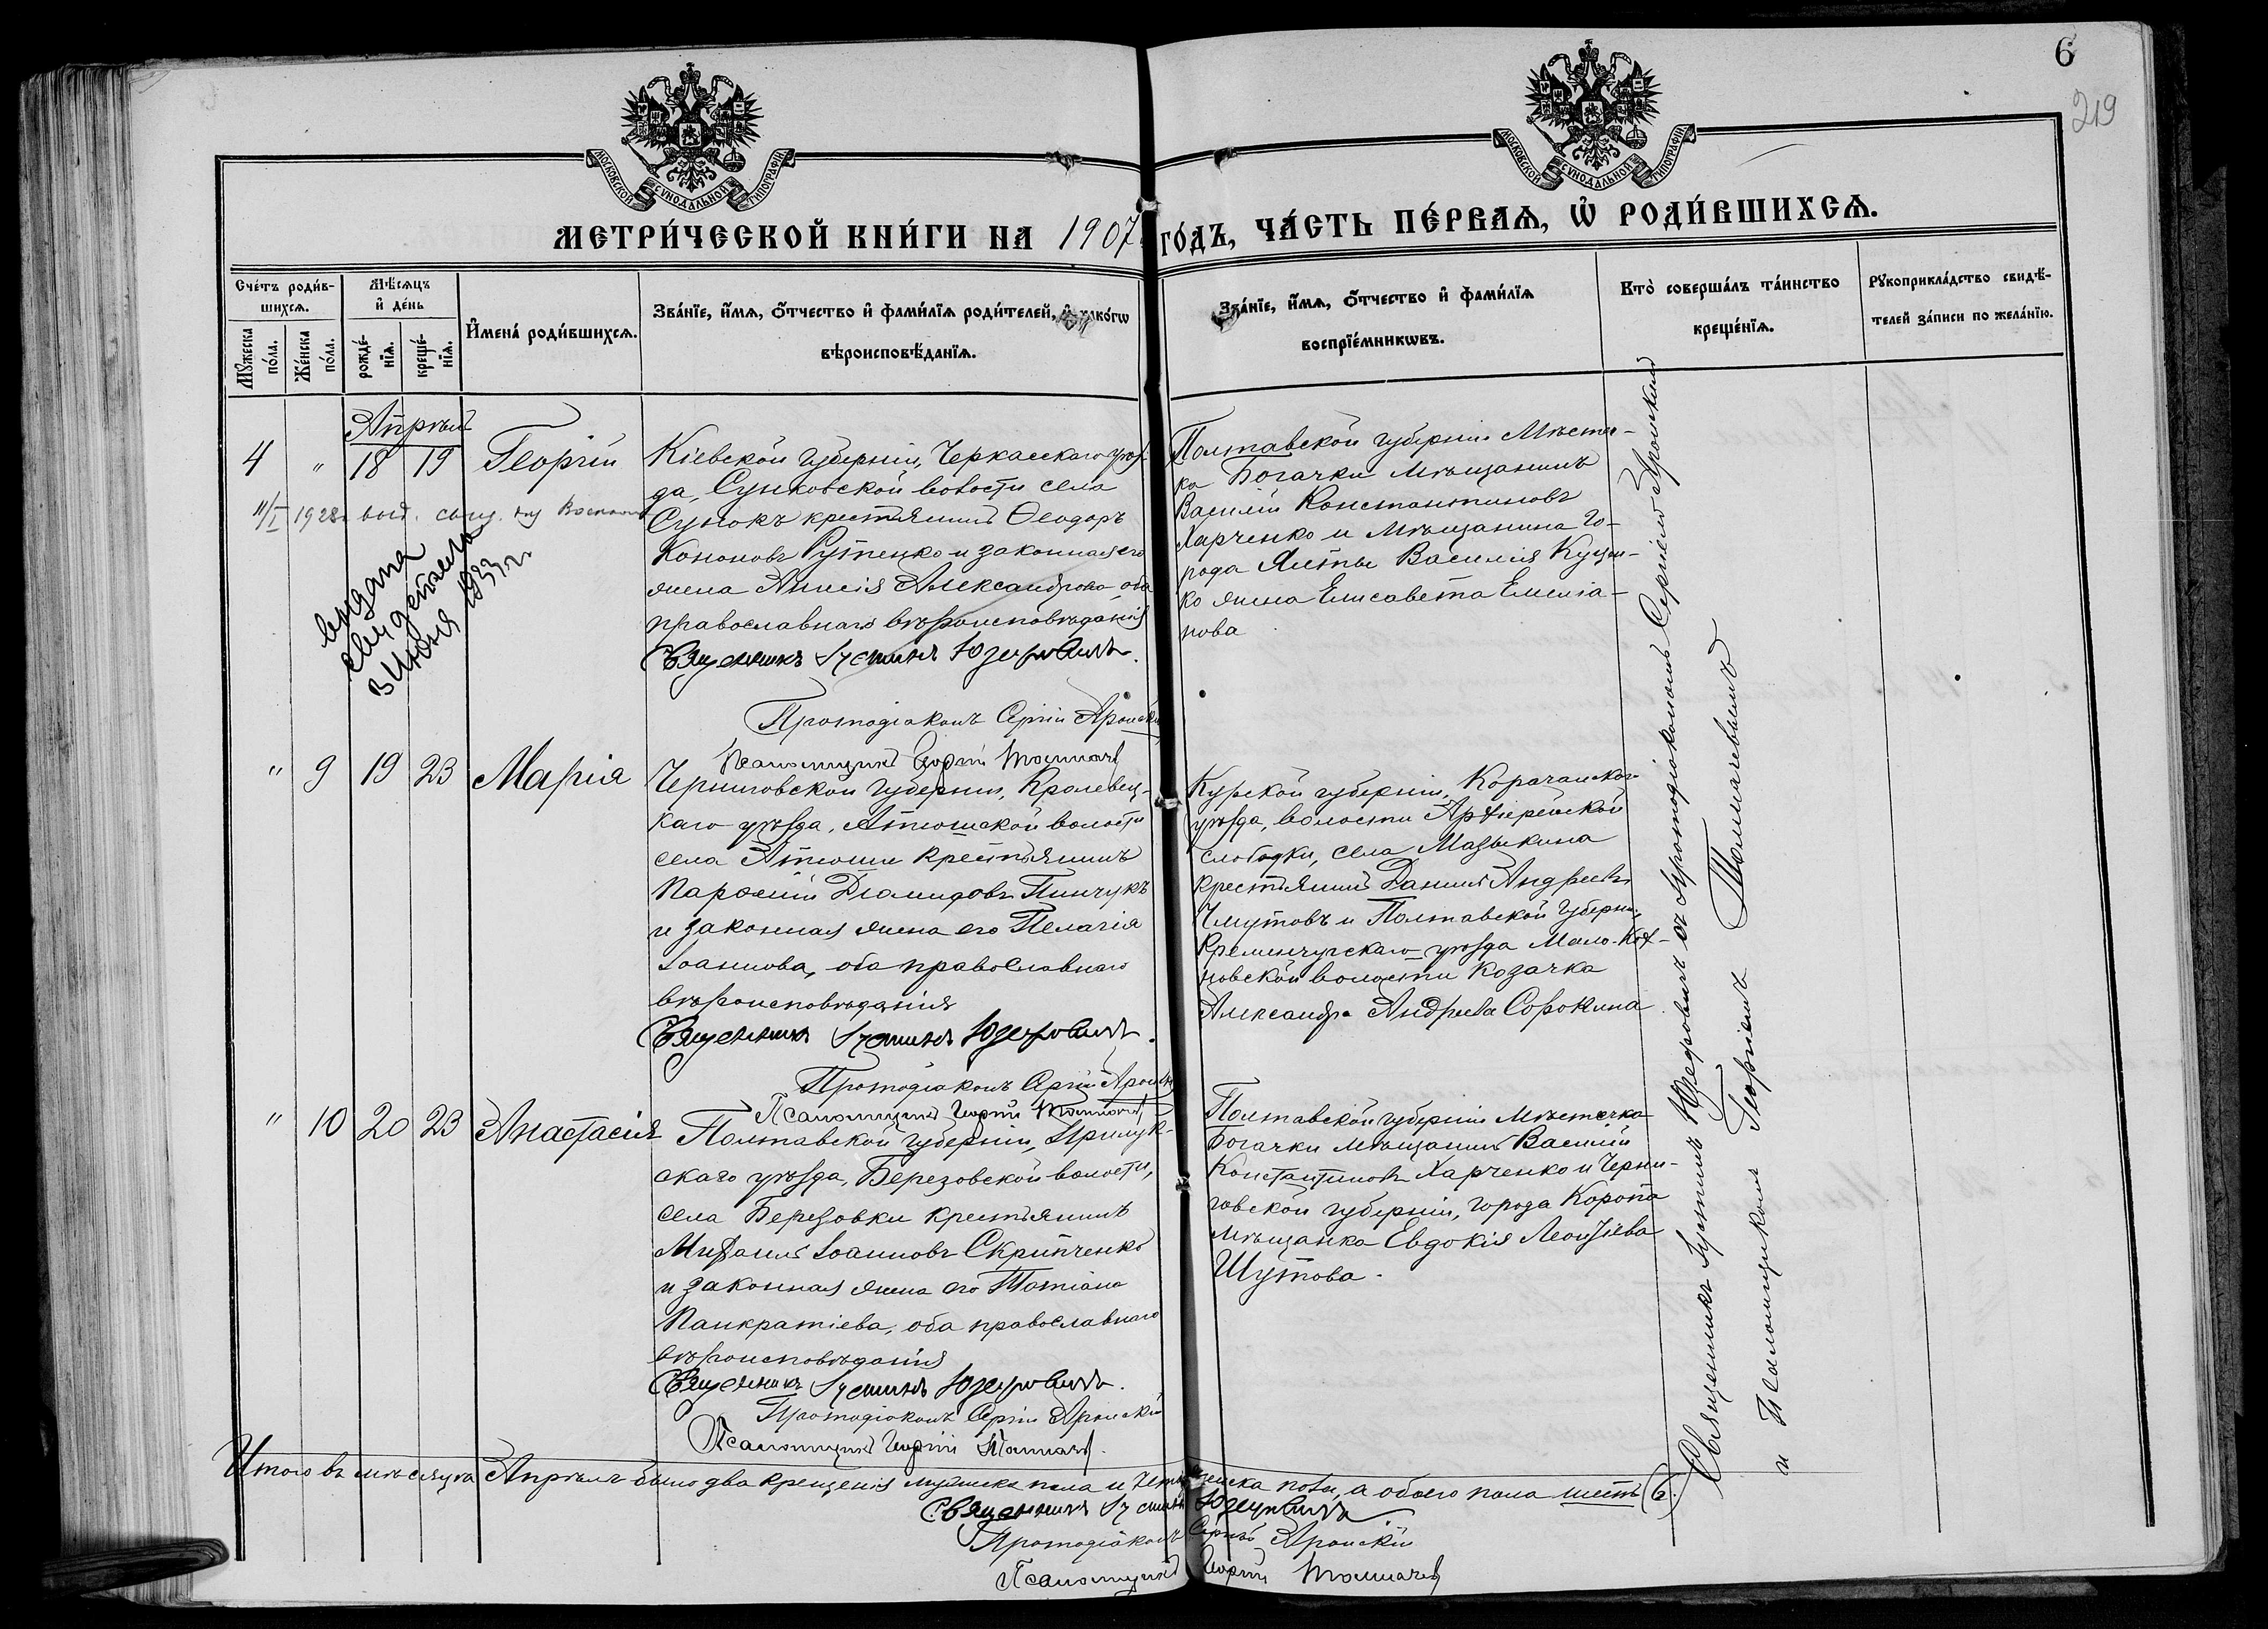 6
219
МОСКОВСКОЙ СѴНОДАЛЬНОЙ ТИПОГРАФІИ
МОСКОВСКОЙ СѴНОДАЛЬНОЙ ТИПОГРАФІИ
МЕТРИ́ЧЕСКОЙ КНИ́ГИ НА 1907 ГО́ДЪ, ЧА́СТЬ ПЕ́РВАѦ, Ѡ҆ РОДИ́ВШИХСѦ.
Сче́тъ роди́в-
шихсѧ.
Мꙋ́жеска по́ла.
Же́нска по́ла.
Мѣ́сѧцъ
и҆ де́нь
рожде́-
нїѧ.
креще́-
нїѧ.
И҆мена̀ роди́вшихсѧ.
Зва́нїе, и҆́мѧ, ѻ҆́тчество и҆ фами́лїѧ роди́телей, и҆ како́гѡ
вѣроисповѣ́данїѧ.
Зва́нїе, и҆́мѧ, ѻ҆́тчество и҆ фами́лїѧ
воспрїе́мникѡвъ.
Кто̀ соверша́лъ та́инство
креще́нїѧ.
Рꙋкоприкла́дство свидѣ́-
телей за́писи по жела́нїю.
Апрѣль
4 " 18 19 Георгій
Кіевской губерніи, Черкасскаго уѣз-
да, Сунковской волости села
Сунокъ крестьянинъ Ѳеодоръ
Кононовъ Рутенко и законная его
жена Анисія Александрова оба
православнаго вѣроисповѣданія
Священникъ Іустинъ Юзефовичъ.
Протодіаконъ Сергій Аронскій
Псаломщикъ Георгій Толмачевъ
Полтавской губерніи Мѣстеч-
ка Богачки мѣщанинъ
Василій Константиновъ
Харченко и мѣщанина го-
рода Ялты Василія Куцен-
ко жена Елисавета Емелiа-
нова
11/I 1928г. выд. свид.
выдана
свидетельс
3 Июня 1933 г.
" 9 19 23 Марія
Черниговской губерніи, Кролевец-
каго уѣзда, Атюшской волости
села Атюши крестьянинъ
Парѳеній Діомидовъ Пинчукъ
и законная жена его Пелагія
Іоаннова, оба православнаго
вѣроисповѣданія
Священникъ Іустинъ Юзефовичъ.
Протодіаконъ Сергій Аронскій
Псаломщикъ Георгій Толмачевъ
Курской губерніи, Корочанскаго
уѣзда, волости Архіерейской
слободки, села Мазыкина
крестьянинъ Даніилъ Андреевъ
Чмутовъ и Полтавской губерніи,
Кременчугскаго уѣзда Мало-Кох-
новской волости козачка
Александра Андреева Сорокина
" 10 20 23 Анастасія
Полтавской губерніи, Прилук-
скаго уѣзда, Березовской волости,
села Березовки крестьянинъ
Михаилъ Іоанновъ Скрипченко
и законная жена его Татіана
Панкратіева, оба православнаго
вѣроисповѣданія
Священникъ Іустинъ Юзефовичъ.
Протодіаконъ Сергій Аронскій
Псаломщикъ Георгій Толмачевъ.
Полтавской губерніи Мѣстечка
Богачки мѣщанинъ Василій
Константиновъ Харченко и Черни-
говской губерніи, города Коропа
мѣщанка Евдокія Леонтіева
Шутова.
Священникъ Іустинъ Юзефовичъ съ протодіакономъ Сергіемъ Аронскимъ
и Псаломщикомъ Георгіемъ Толмачевымъ
Итого въ мѣсяцѣ Апрѣлѣ было два крещенія мужеска пола и четыре женска пола, а обоего пола шесть (6.)
Священникъ Іустинъ Юзефовичъ
Протодіаконъ Сергій Аронскій
Псаломщикъ Георгій Толмачевъ